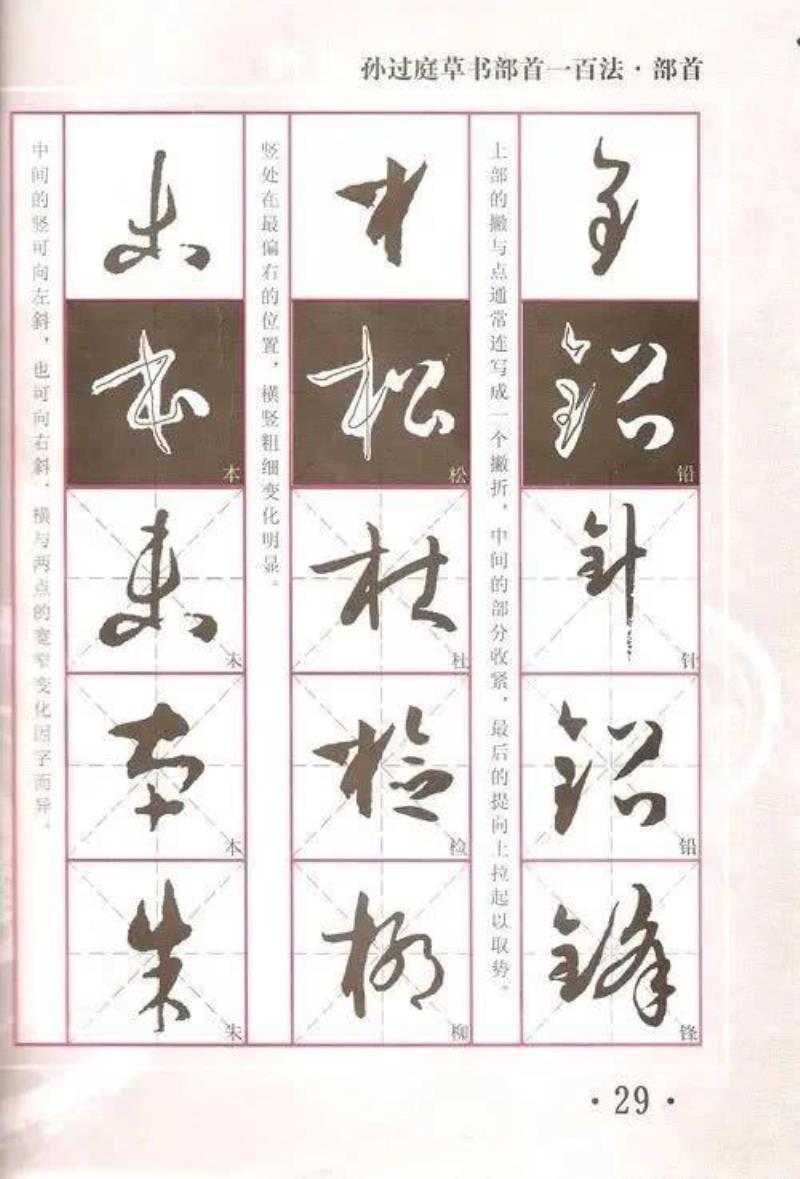 孙过庭草书部首一百法·部首
铅
针
铅
锋
上部的撇与点通常连写成一个撇折，中间的部分收紧，最后的提向上拉起以取势。
松
杜
检
柳
竖处在最偏右的位置，横竖粗细变化明显。
本
未
本
朱
中间的竖可向左斜，也可向右斜，横与两点的宽窄变化因字而异。
·29·